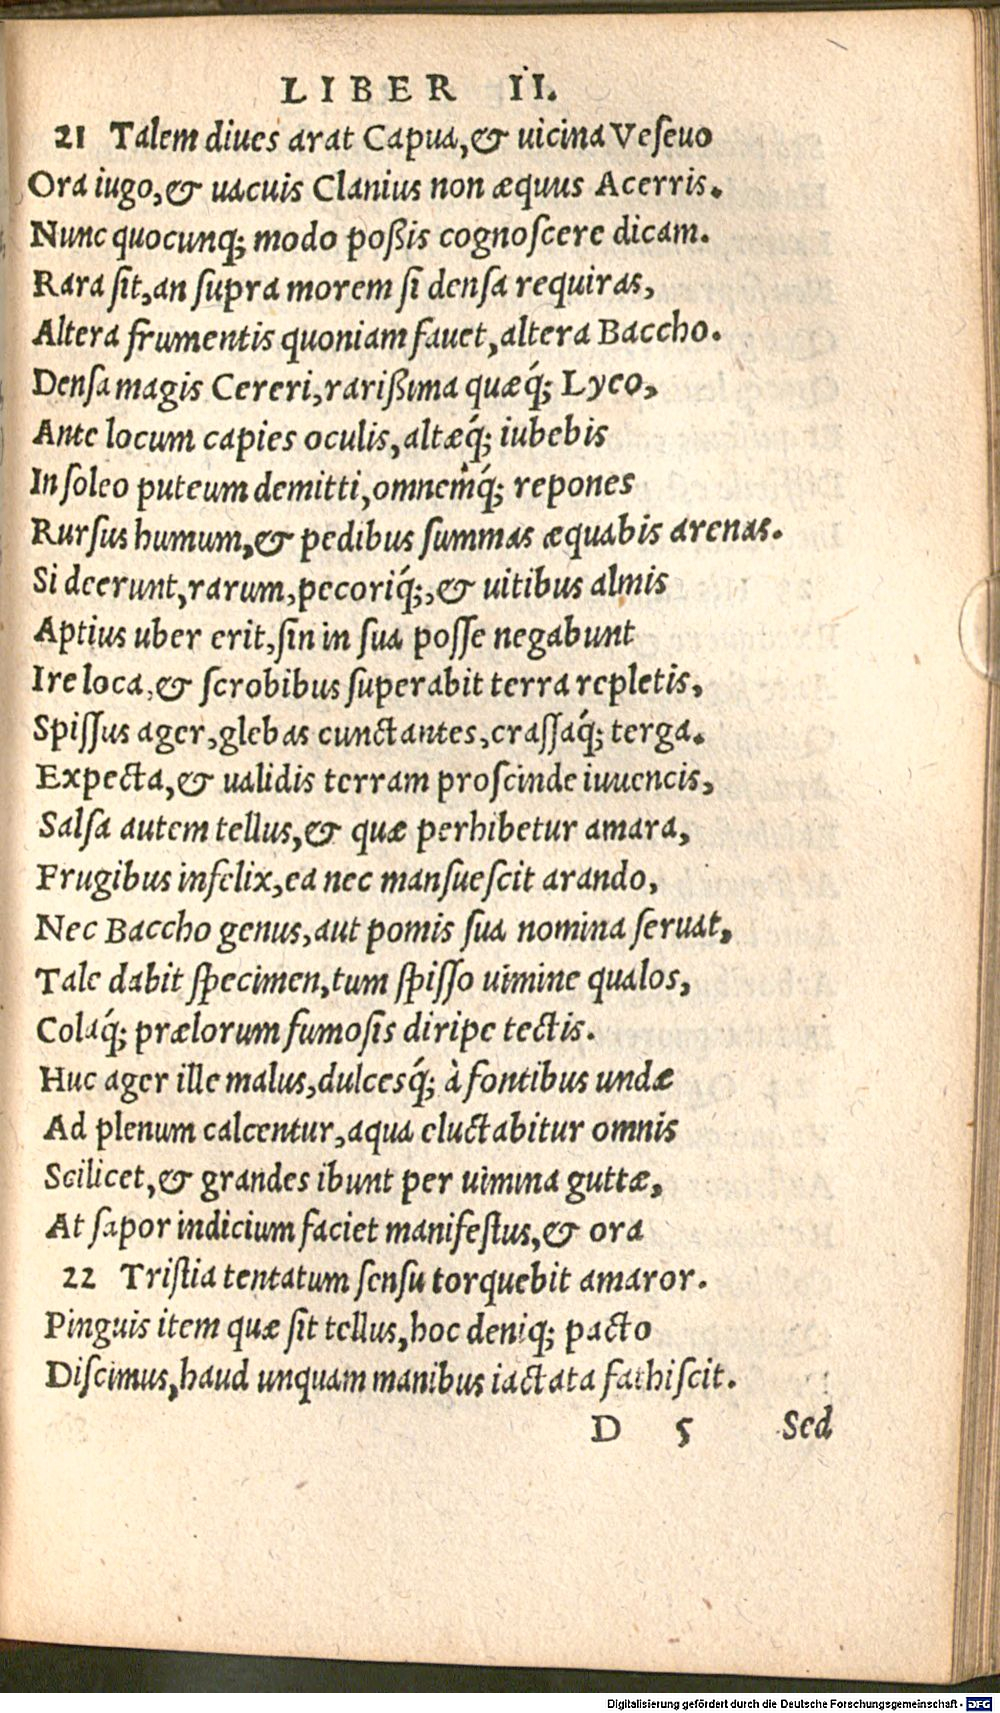 LIBER II.
21 Talem diues arat Capua, & uicina Veſeuo
Ora iugo, & uacuis Clanius non æquus Acerris.
Nunc quocunq; modo poßis cognoſcere dicam.
Rara ſit, an ſupra morem ſi denſa requiras,
Altera frumentis quoniam fauet, altera Baccho.
Denſa magis Cereri, rarißima quæq́; Lyco,
Ante locum capies oculis, altæq́; iubebis
In ſoleo puteum demitti, omnemq́; repones
Rurſus humum, & pedibus ſummas æquabis arenas.
Si deerunt, rarum, pecoriq́;, & uitibus almis
Aptius uber erit, ſin in ſua poſſe negabunt
Ire loca, & ſcrobibus ſuperabit terra repletis,
Spiſſus ager, glebas cunctantes, craſſaq́; terga.
Expecta, & ualidis terram proſcinde iuuencis,
Salſa autem tellus, & quæ perhibetur amara,
Frugibus infelix, ea nec manſueſcit arando,
Nec Baccho genus, aut pomis ſua nomina ſeruat,
Tale dabit ſpecimen, tum ſpiſſo uimine qualos,
Colaq́; prælorum fumoſis diripe tectis.
Huc ager ille malus, dulcesq́; à fontibus undæ
Ad plenum calcentur, aqua eluctabitur omnis
Scilicet, & grandes ibunt per uimina guttæ,
At ſapor indicium faciet manifeſtus, & ora
22 Triſtia tentatum ſenſu torquebit amaror.
Pinguis item quæ ſit tellus, hoc deniq; pacto
Diſcimus, haud unquam manibus iactata fathiſcit.
D 5 Sed
Digitalisierung gefördert durch die Deutsche Forschungsgemeinschaft - DFG